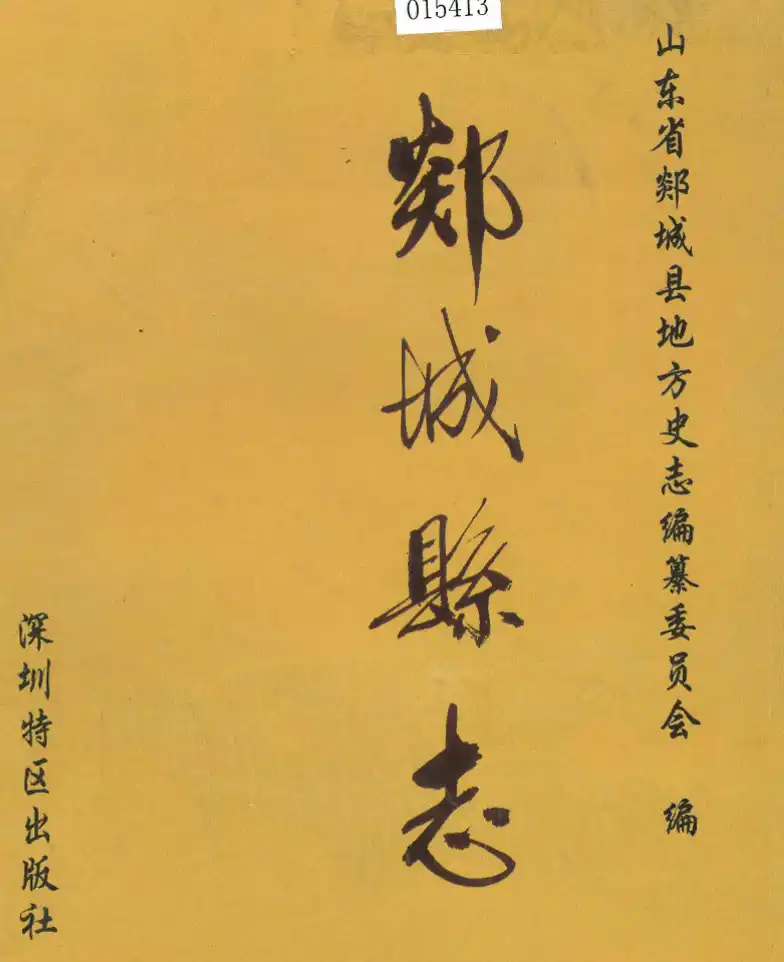 015413
山东省郯城县地方史志编纂委员会 编
郯城縣志
深圳特区出版社